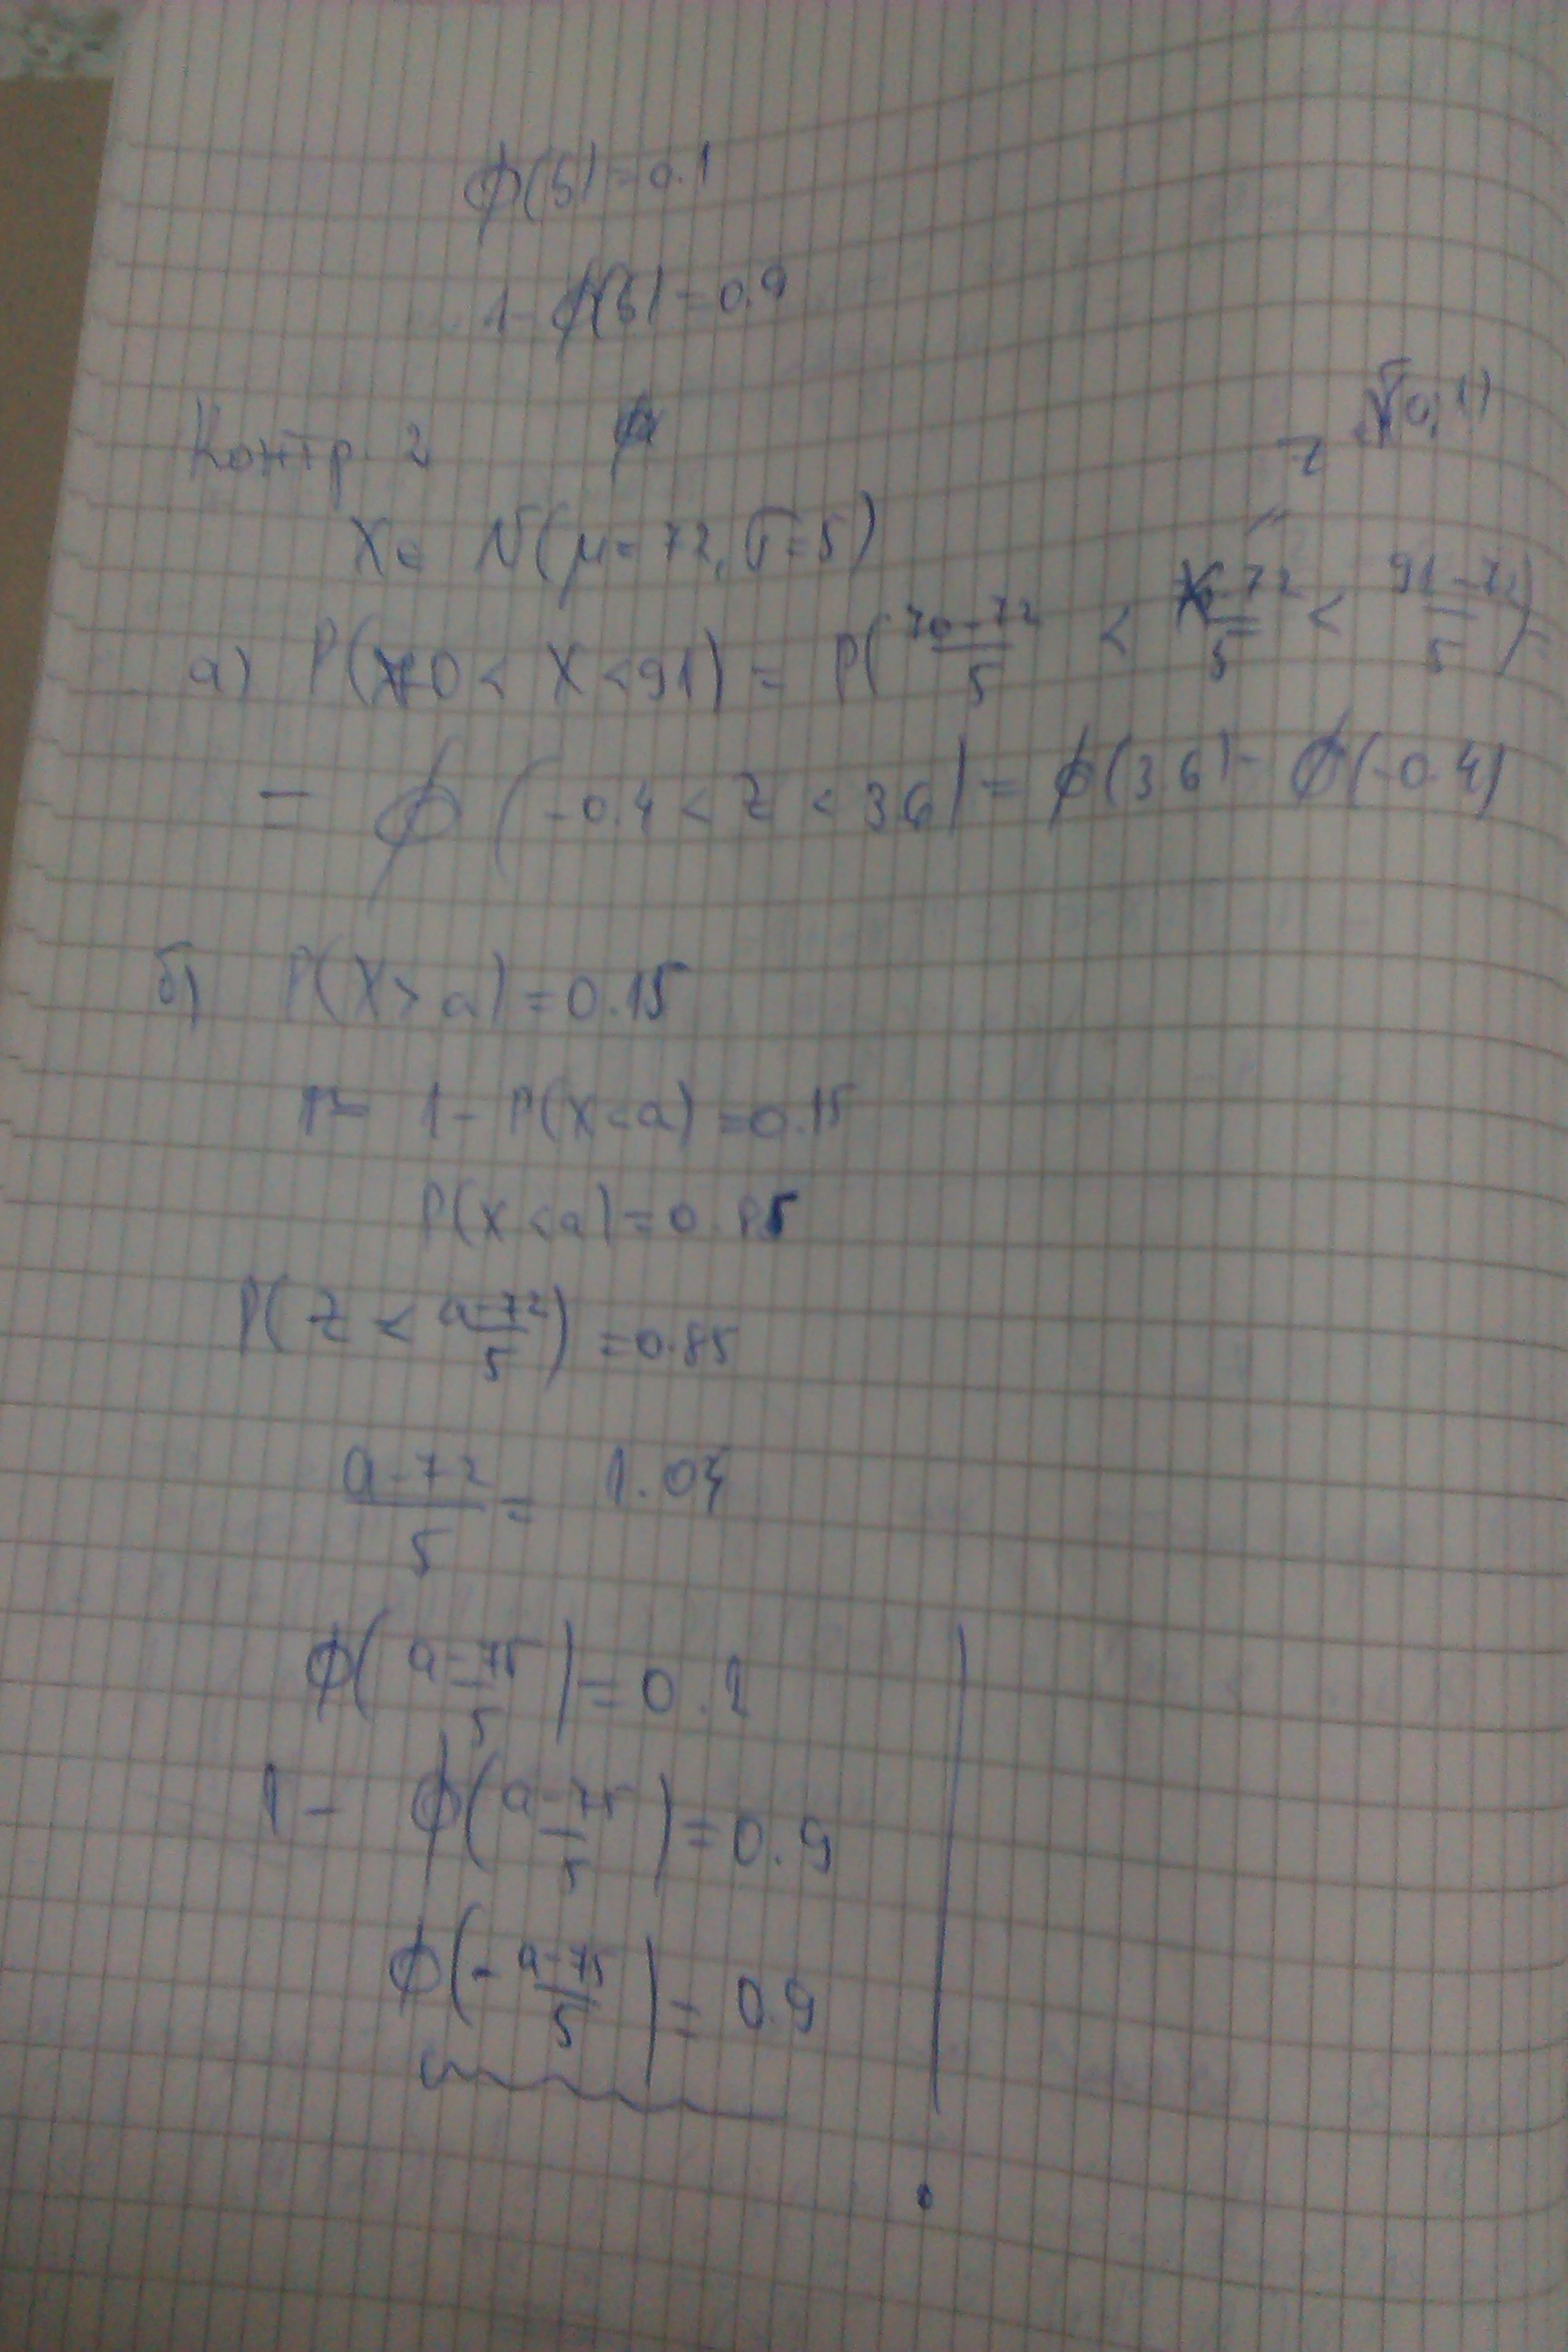 ϕ(б) = 0.1
1 - ϕ(б) = 0.9
Контр. 2
z ∈ N(0, 1)
X ∈ N(μ = 72, σ = 5)
а) P(70 < X < 91) = P(70-72/5 < X-72/5 < 91-72/5) =
= ϕ(-0.4 < z < 3.6) = ϕ(3.6) - ϕ(-0.4)
б) P(X > a) = 0.15
1 - P(X < a) = 0.15
P(X < a) = 0.85
P(z < a-72/5) = 0.85
a-72/5 = 1.04
ϕ(a-75/5) = 0.1
1 - ϕ(a-75/5) = 0.9
ϕ(- a-75/5) = 0.9